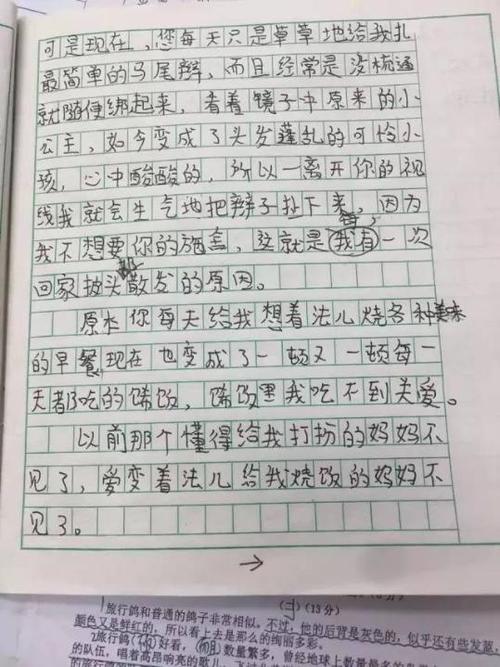 可是现在，您每天只是草草地给我扎
最简单的马尾辫，而且经常是没梳通
就随便绑起来，看着镜子中原来的小
公主，如今变成了头发蓬乱的可怜小
孩，心中酸酸的，所以一离开你的视
线我就会生气地把辫子拉下来，因为
我不想要你的施舍，这就是我有每一次
回家披头散发的原因。
原本你每天给我想着法儿烧各种美味
的早餐现在也变成了一顿又一顿每一
天都吃的馊饭，馊饭里我吃不到关爱。
以前那个懂得给我打扮的妈妈不
见了，爱变着法儿给我烧饭的妈妈不
见了。
→
(二)(13分)
1旅行鸽和普通的鸽子非常相似。不过，他的后背是灰色的，似乎还有些发蓝
颜色又是鲜红的，所以看上去是那么的绚丽多彩。
2旅行鸽(不但)好看，(而且)数量繁多，曾经是地球上数量最多的
的队伍，唱着高昂响亮的歌儿，